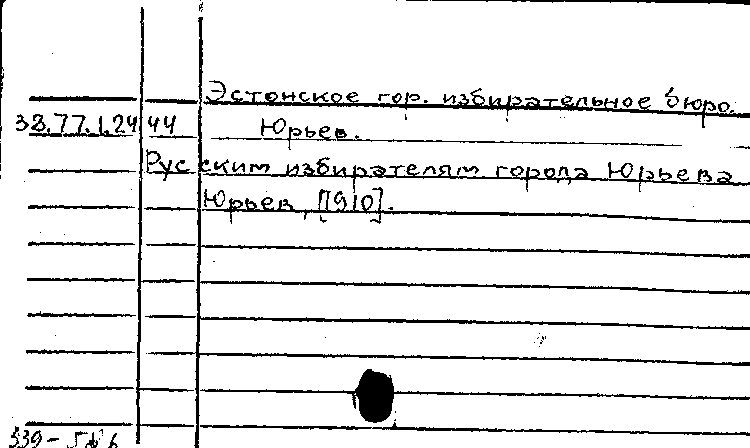 Эстонское гор. избирательное бюро.
38.77.1.24 44 Юрьев.
Русским избирателям города Юрьева
Юрьев, [1910].